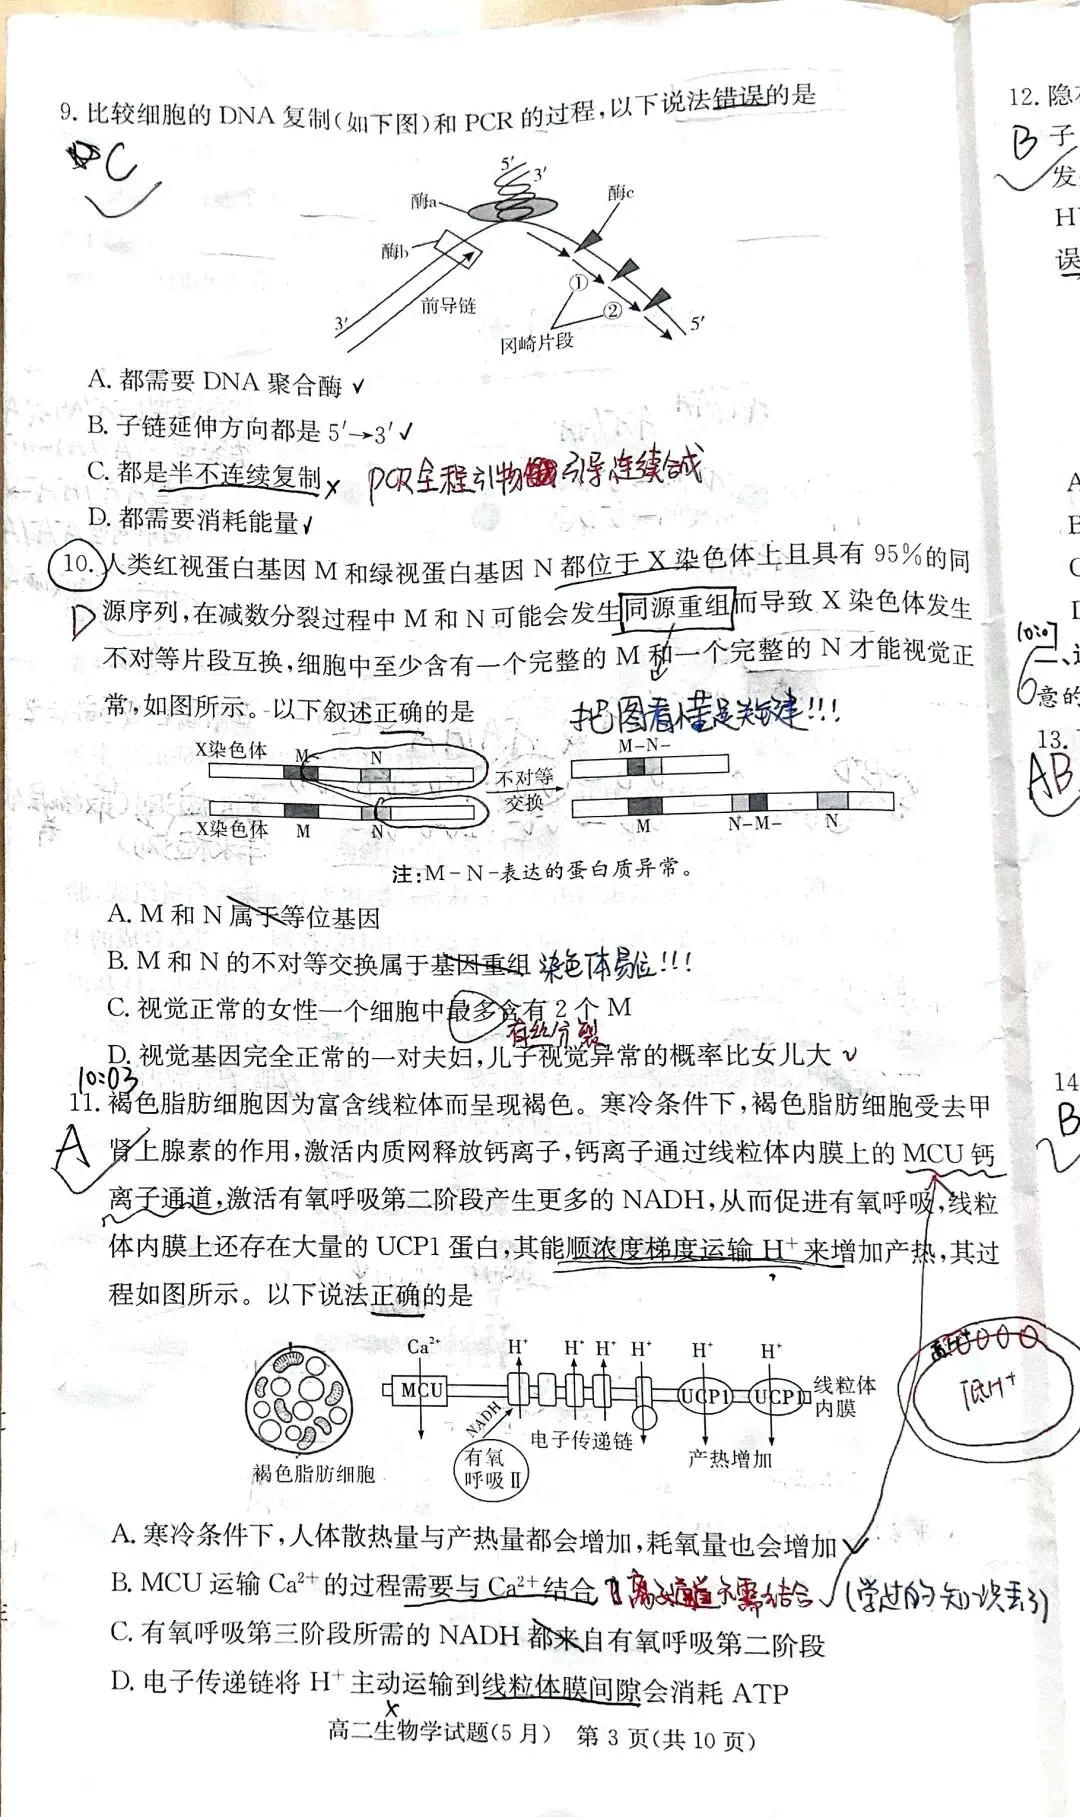 9. 比较细胞的 DNA 复制(如下图)和 PCR 的过程,以下说法错误的是
C
5′
3′
酶a
酶c
酶b
①
前导链
②
3′
5′
冈崎片段
A. 都需要 DNA 聚合酶 ✓
B. 子链延伸方向都是 5′→3′ ✓
C. 都是半不连续复制 × PCR全程引物引导连续合成
D. 都需要消耗能量 ✓
10. 人类红视蛋白基因 M 和绿视蛋白基因 N 都位于 X 染色体上且具有 95%的同
D 源序列,在减数分裂过程中 M 和 N 可能会发生同源重组而导致 X 染色体发生
不对等片段互换,细胞中至少含有一个完整的 M 和一个完整的 N 才能视觉正
常,如图所示。以下叙述正确的是 把图看懂是关键!!!
X染色体 M N
M-N-
不对等
交换
X染色体 M N
M N-M- N
注:M-N-表达的蛋白质异常。
A. M 和 N 属于等位基因
B. M 和 N 的不对等交换属于基因重组 染色体易位!!!
C. 视觉正常的女性一个细胞中最多含有 2 个 M
有丝分裂
D. 视觉基因完全正常的一对夫妇,儿子视觉异常的概率比女儿大 ✓
10:03
11. 褐色脂肪细胞因为富含线粒体而呈现褐色。寒冷条件下,褐色脂肪细胞受去甲
A 肾上腺素的作用,激活内质网释放钙离子,钙离子通过线粒体内膜上的 MCU 钙
离子通道,激活有氧呼吸第二阶段产生更多的 NADH,从而促进有氧呼吸,线粒
体内膜上还存在大量的 UCP1 蛋白,其能顺浓度梯度运输 H⁺来增加产热,其过
程如图所示。以下说法正确的是
Ca²⁺ H⁺ H⁺ H⁺ H⁺ H⁺ H⁺
MCU UCP1 UCP1 线粒体
内膜
NADH
电子传递链
有氧
呼吸Ⅱ
产热增加
褐色脂肪细胞
低H⁺
A. 寒冷条件下,人体散热量与产热量都会增加,耗氧量也会增加 ✓
B. MCU 运输 Ca²⁺的过程需要与 Ca²⁺结合 离子通道不需结合 (学过的知识丢了)
C. 有氧呼吸第三阶段所需的 NADH 都来自有氧呼吸第二阶段
D. 电子传递链将 H⁺主动运输到线粒体膜间隙会消耗 ATP
×
高二生物学试题(5月) 第 3 页(共 10 页)
12. 隐
B 子
发
H
误
A
B
C
D
10:07
二、
6 意的
13.
AB
14
B